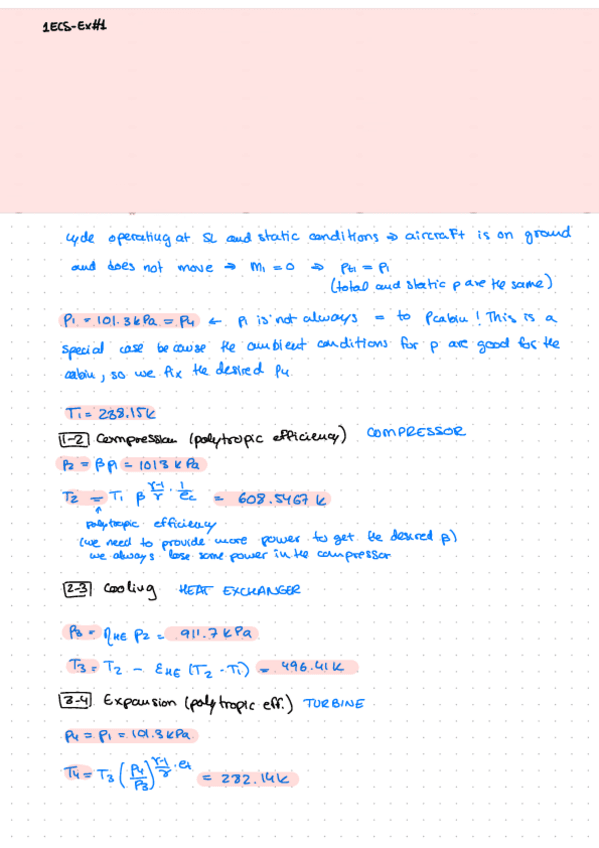 1ECS-Ex#1
cycle operating at SL and static conditions ⇒ aircraft is on ground
and does not move ⇒ M₁ = 0 ⇒ Pt₁ = P₁
(total and static p are the same)
P₁ = 101.3 kPa = P₄ ← P₁ is not always = to Pcabin! This is a
special case because the ambient conditions for p are good for the
cabin, so we fix the desired P₄.
T₁ = 288.15K
1-2 Compression (polytropic efficiency) COMPRESSOR
P₂ = β P₁ = 1013 kPa
T₂ = T₁ β^(γ-1/γ · 1/ec) = 608.5467 K
polytropic efficiency
(we need to provide more power to get the desired β)
we always lose some power in the compressor
2-3 Cooling HEAT EXCHANGER
P₃ = ηHE P₂ = 911.7 kPa
T₃ = T₂ - εHE (T₂ - T₁) = 496.41K
3-4 Expansion (polytropic eff.) TURBINE
P₄ = P₁ = 101.3 kPa
T₄ = T₃ (P₄/P₃)^(γ-1/γ · et) = 282.14K